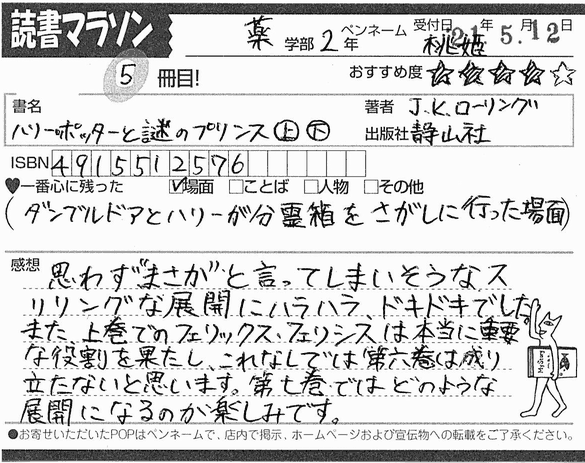 読書マラソン
薬学部2年
ペンネーム 桃姫
受付日 21年5.月12日
5冊目!
おすすめ度 ★★★★☆
書名
ハリーポッターと謎のプリンス上下
著者 J.K.ローリング
出版社 静山社
ISBN 4915512576
♥一番心に残った ☑場面 □ことば □人物 □その他
(ダンブルドアとハリーが分霊箱をさがしに行った場面)
感想
思わず“まさか”と言ってしまいそうなス
リリングな展開にハラハラ、ドキドキでした。
また、上巻でのフェリックス・フェリシスは本当に重要
な役割を果たし、これなしでは第六巻は成り
立たないと思います。第七巻ではどのような
展開になるのか楽しみです。
●お寄せいただいたPOPはペンネームで、店内で掲示、ホームページおよび宣伝物への転載をご了承ください。